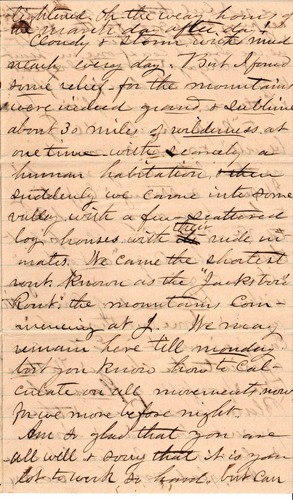 lightened. Oh the weary hours of
the march day after day &
Cloudy & Storm with mud
neach every day. But I found
some relief for the mountains
were indeed grand & sublime
about 30 miles of wilderness at
one time with scarcely a
human habitation, then
suddenly we came into some
valley with a few scattered
log houses with their rude in
mates. We came the shortest
rout. Known as the "Jacksboro
Rout" the mountains Com-
mencing at J. We may
remain here till monday
but you know how to Cal-
culate on all movements, now
for we move before night.
Am so glad that you are
all well & sorry that it is your
lot to work so hard. but can